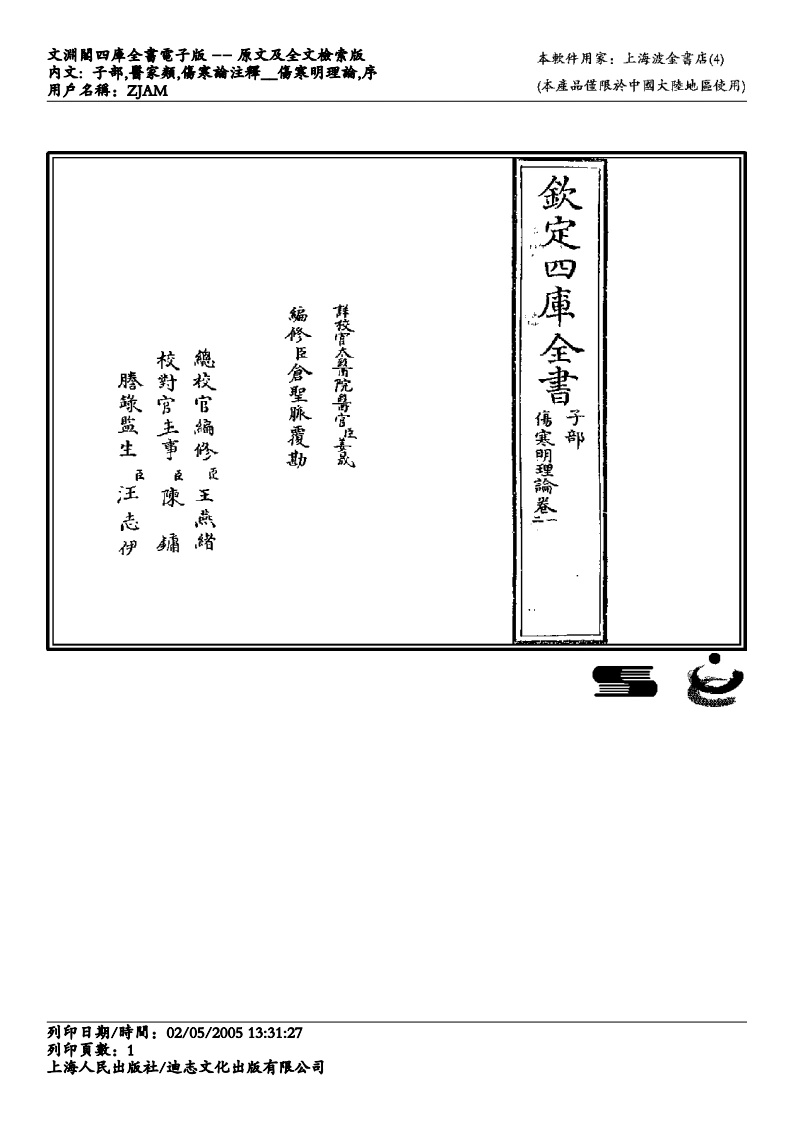 文淵閣四庫全書電子版 –– 原文及全文檢索版
内文：子部,醫家類,傷寒論注釋__傷寒明理論,序
用戶名稱：ZJAM
本軟件用家：上海波金書店(4)
(本產品僅限於中國大陸地區使用)
欽定四庫全書
子部
傷寒明理論卷一二
詳校官太醫院醫官臣姜晟
編修臣倉聖脈覆勘
總校官編修臣王燕緒
校對官主事臣陳鏞
謄錄監生臣汪志伊
列印日期/時間：02/05/2005 13:31:27
列印頁數：1
上海人民出版社/迪志文化出版有限公司